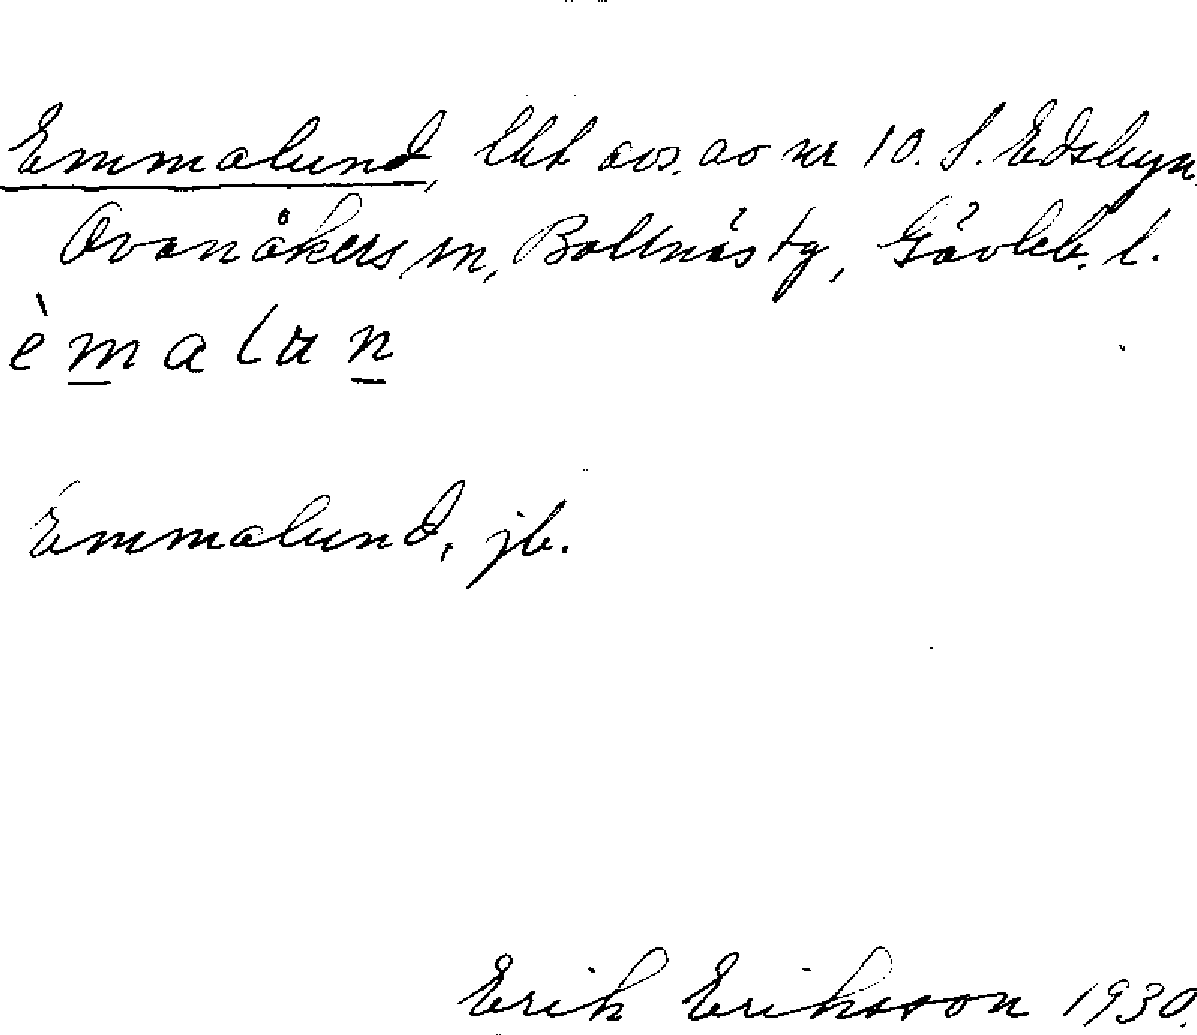 Emmalund, lht avs. av nr 10. s. Edsbyn,
Ovanåkers sn, Bollnäs tg, Gävleb. l.
èmalun
Emmalund, jb.
Erik Eriksson 1930.